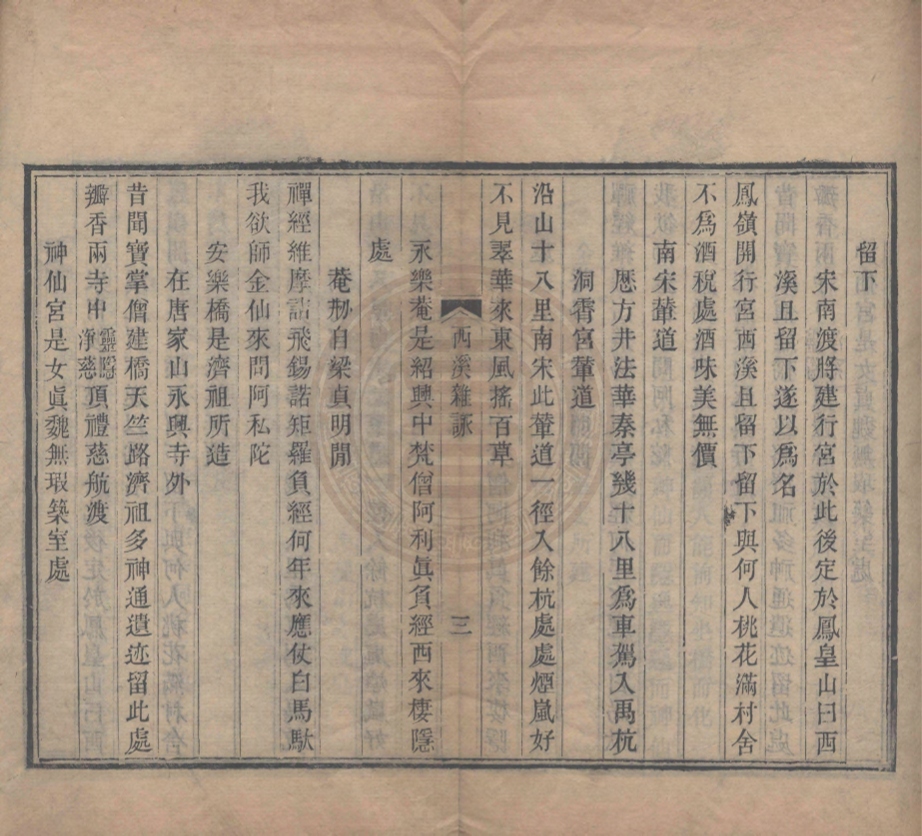 留下
宋南渡將建行宮於此後定於鳳皇山曰西
溪且留下遂以爲名
鳳嶺開行宮西溪且留下留下與何人桃花滿村舍
不爲酒稅處酒味美無價
南宋輦道
厯方井法華秦亭幾十八里爲車駕入禹杭
洞霄宮輦道
沿山十八里南宋此輦道一徑入餘杭處處煙嵐好
不見翠華來東風搖百草
西溪雜詠
三
永樂菴是紹興中梵僧阿利眞負經西來棲隱
處
菴剏自梁貞明閒
禪經維摩詰飛錫諾矩羅負經何年來應仗白馬馱
我欲師金仙來問阿私陀
安樂橋是濟祖所造
在唐家山永興寺外
昔聞寶掌僧建橋天竺路濟祖多神通遺迹留此處
瓣香兩寺中靈隱淨慈頂禮慈航渡
神仙宮是女眞魏無瑕築室處